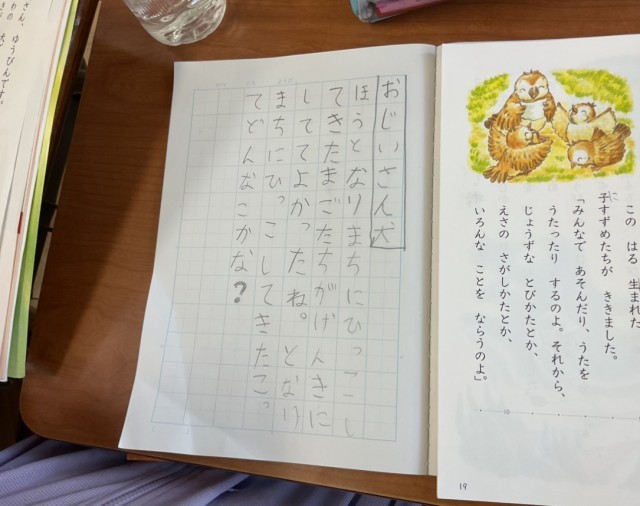 この はる 生まれた
子すずめたちが ききました。
「みんなで あそんだり、うたを
うたったり するのよ。それから、
じょうずな とびかたとか、
えさの さがしかたとか、
いろんな ことを ならうのよ」。
10
19
おじいさん犬
ほうとなりまちにひっこし
てきたまごたちがげんきに
しててよかったね。となり
まちにひっこしてきたこっ
てどんなこかな?
さん、ゆうびんです。